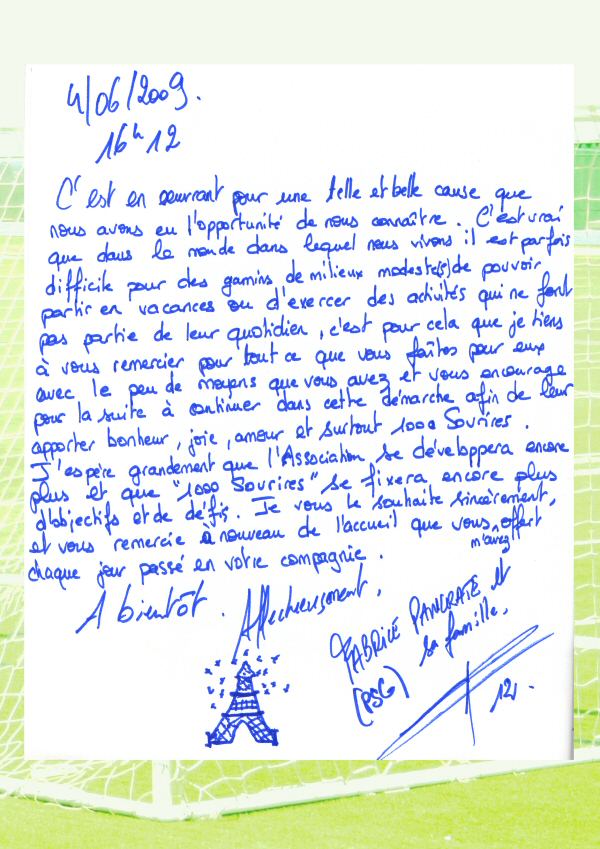 4/06/2009.
16h12
C'est en oeuvrant pour une telle et belle cause que
nous avons eu l'opportunité de nous connaître. C'est vrai
que dans le monde dans lequel nous vivons il est parfois
difficile pour des gamins de milieux modeste(s) de pouvoir
partir en vacances ou d'exercer des activités qui ne font
pas partie de leur quotidien, c'est pour cela que je tiens
à vous remercier pour tout ce que vous faîtes pour eux
avec le peu de moyens que vous avez et vous encourage
pour la suite à continuer dans cette démarche afin de leur
apporter bonheur, joie, amour et surtout 1000 Sourires.
J'espère grandement que l'Association se développera encore
plus et que "1000 Sourires" se fixera encore plus
d'objectifs et de défis. Je vous le souhaite sincèrement,
et vous remercie à nouveau de l'accueil que vous m'avez offert
chaque jour passé en votre compagnie.
A bientôt. Affectueusement,
FABRICE PANCRATE et
sa famille.
(PSG)
12.